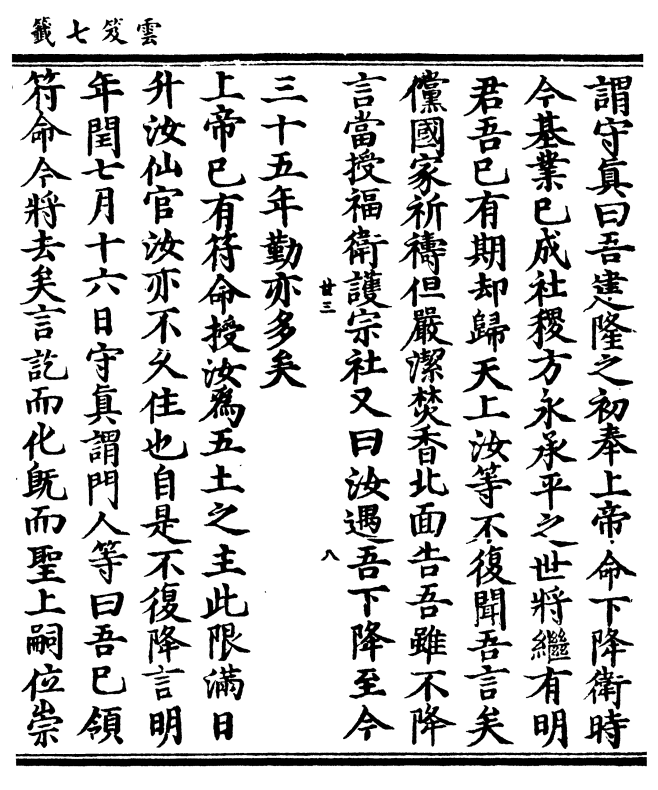 雲笈七籤
謂守眞曰吾建隆之初奉上帝命下降衛時
今基業巳成社稷方永承平之世將繼有明
君吾巳有期却歸天上汝等不復聞吾言矣
儻國家祈禱但嚴潔焚香北面告吾雖不降
言當授福衛護宗社又曰汝遇吾下降至今
廿三
八
三十五年勤亦多矣
上帝巳有符命授汝爲五土之主此限滿日
升汝仙官汝亦不久住也自是不復降言明
年閏七月十六日守眞謂門人等曰吾巳領
符命今將去矣言訖而化旣而聖上嗣位崇